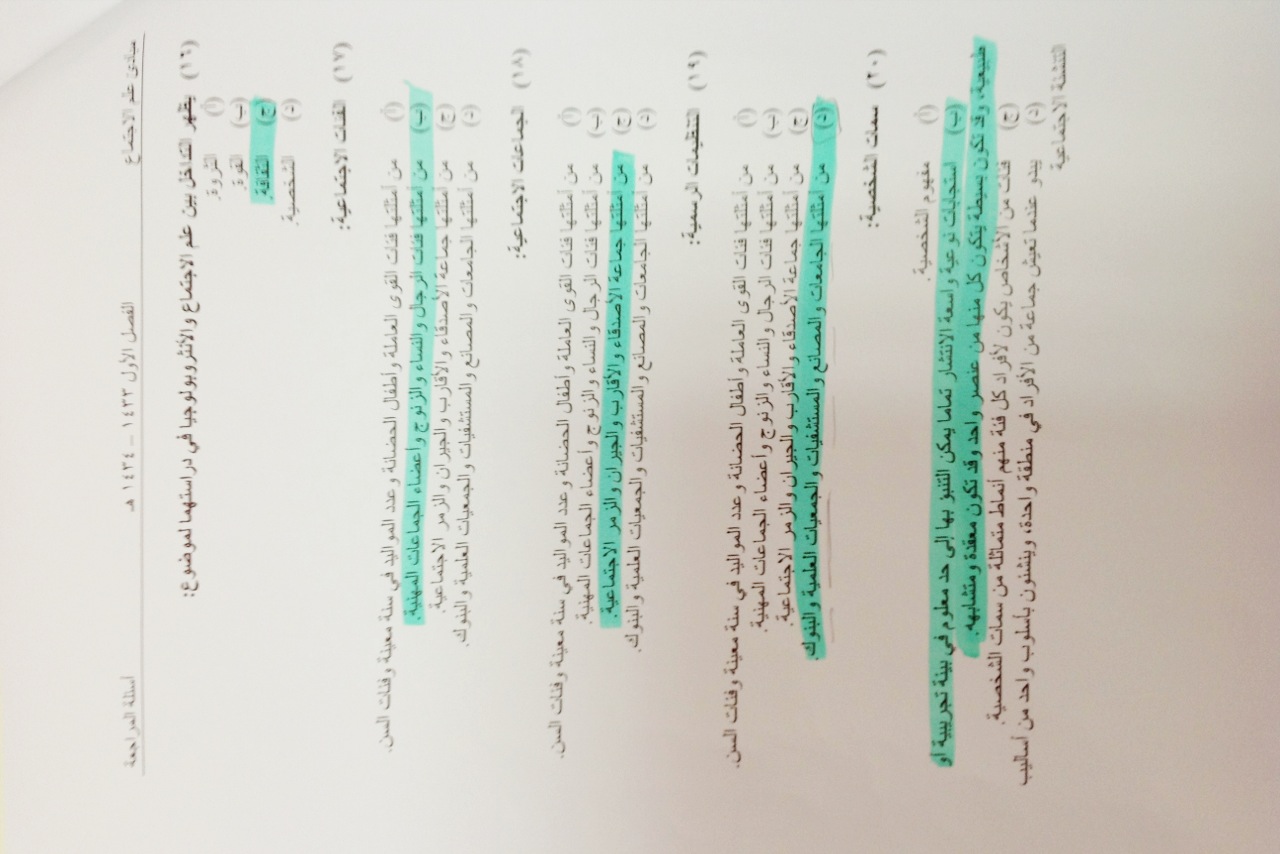 مبادئ علم الاجتماع الفصل الأول ١٤٣٣ – ١٤٣٤ هـ أسئلة المراجعة
(١٦) يظهر التداخل بين علم الاجتماع والأنثروبولوجيا في دراستهما لموضوع:
(أ) الثروة.
(ب) القوة.
(ج) الثقافة.
(د) الشخصية.
(١٧) الفئات الاجتماعية:
(أ) من أمثلتها فئات القوى العاملة وأطفال الحضانة وعدد المواليد في سنة معينة وفئات السن.
(ب) من أمثلتها فئات الرجال والنساء والزنوج وأعضاء الجماعات المهنية.
(ج) من أمثلتها جماعة الأصدقاء والأقارب والجيران والزمر الاجتماعية.
(د) من أمثلتها الجامعات والمصانع والمستشفيات والجمعيات العلمية والبنوك.
(١٨) الجماعات الاجتماعية:
(أ) من أمثلتها فئات القوى العاملة وأطفال الحضانة وعدد المواليد في سنة معينة وفئات السن.
(ب) من أمثلتها فئات الرجال والنساء والزنوج وأعضاء الجماعات المهنية.
(ج) من أمثلتها جماعة الأصدقاء والأقارب والجيران والزمر الاجتماعية.
(د) من أمثلتها الجامعات والمصانع والمستشفيات والجمعيات العلمية والبنوك.
(١٩) التنظيمات الرسمية:
(أ) من أمثلتها فئات القوى العاملة وأطفال الحضانة وعدد المواليد في سنة معينة وفئات السن.
(ب) من أمثلتها فئات الرجال والنساء والزنوج وأعضاء الجماعات المهنية.
(ج) من أمثلتها جماعة الأصدقاء والأقارب والجيران والزمر الاجتماعية.
(د) من أمثلتها الجامعات والمصانع والمستشفيات والجمعيات العلمية والبنوك.
(٢٠) سمات الشخصية:
(أ) مفهوم الشخصية.
(ب) استجابات نوعية واسعة الانتشار تماما يمكن التنبؤ بها إلى حد معلوم في بيئة تجريبية أو
طبيعية، وقد تكون بسيطة يتكون كل منها من عنصر واحد وقد تكون معقدة ومتشابهه.
(ج) فئات من الأشخاص يكون لأفراد كل فئة منهم أنماط متماثلة من سمات الشخصية.
(د) يبدو عندما تعيش جماعة من الأفراد في منطقة واحدة، وينشئون بأسلوب واحد من أساليب
التنشئة الاجتماعية